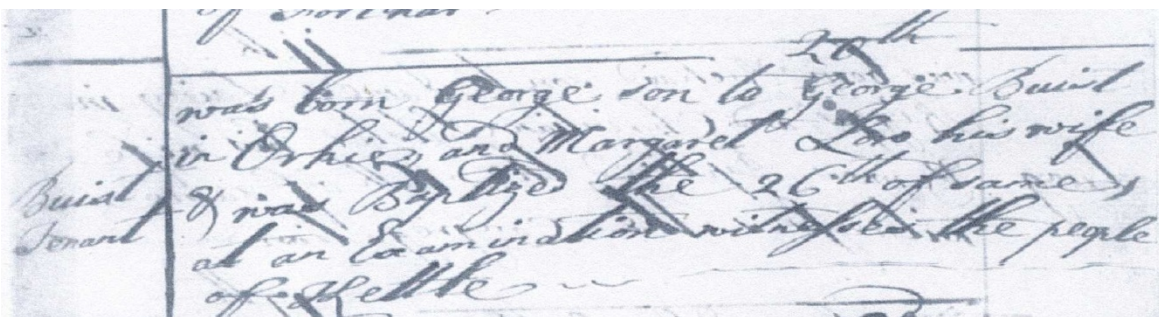 of
20th
was born George son to George Buist
in Orkie and Margaret his wife
& was Baptized the 26th of same
at an Examination witnesses the people
of Kettle
Buist
Tenant